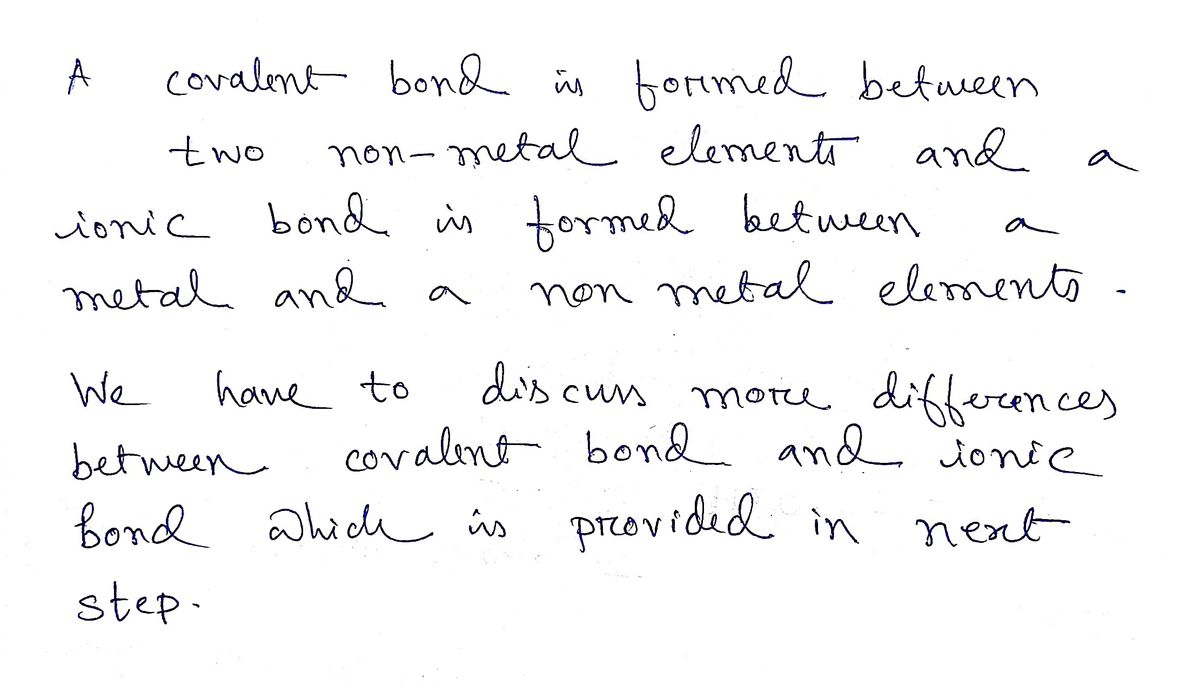 A covalent bond is formed between
two non-metal elements and a
ionic bond is formed between a
metal and a non metal elements.
We have to discuss more differences
between covalent bond and ionic
bond which is provided in next
step.